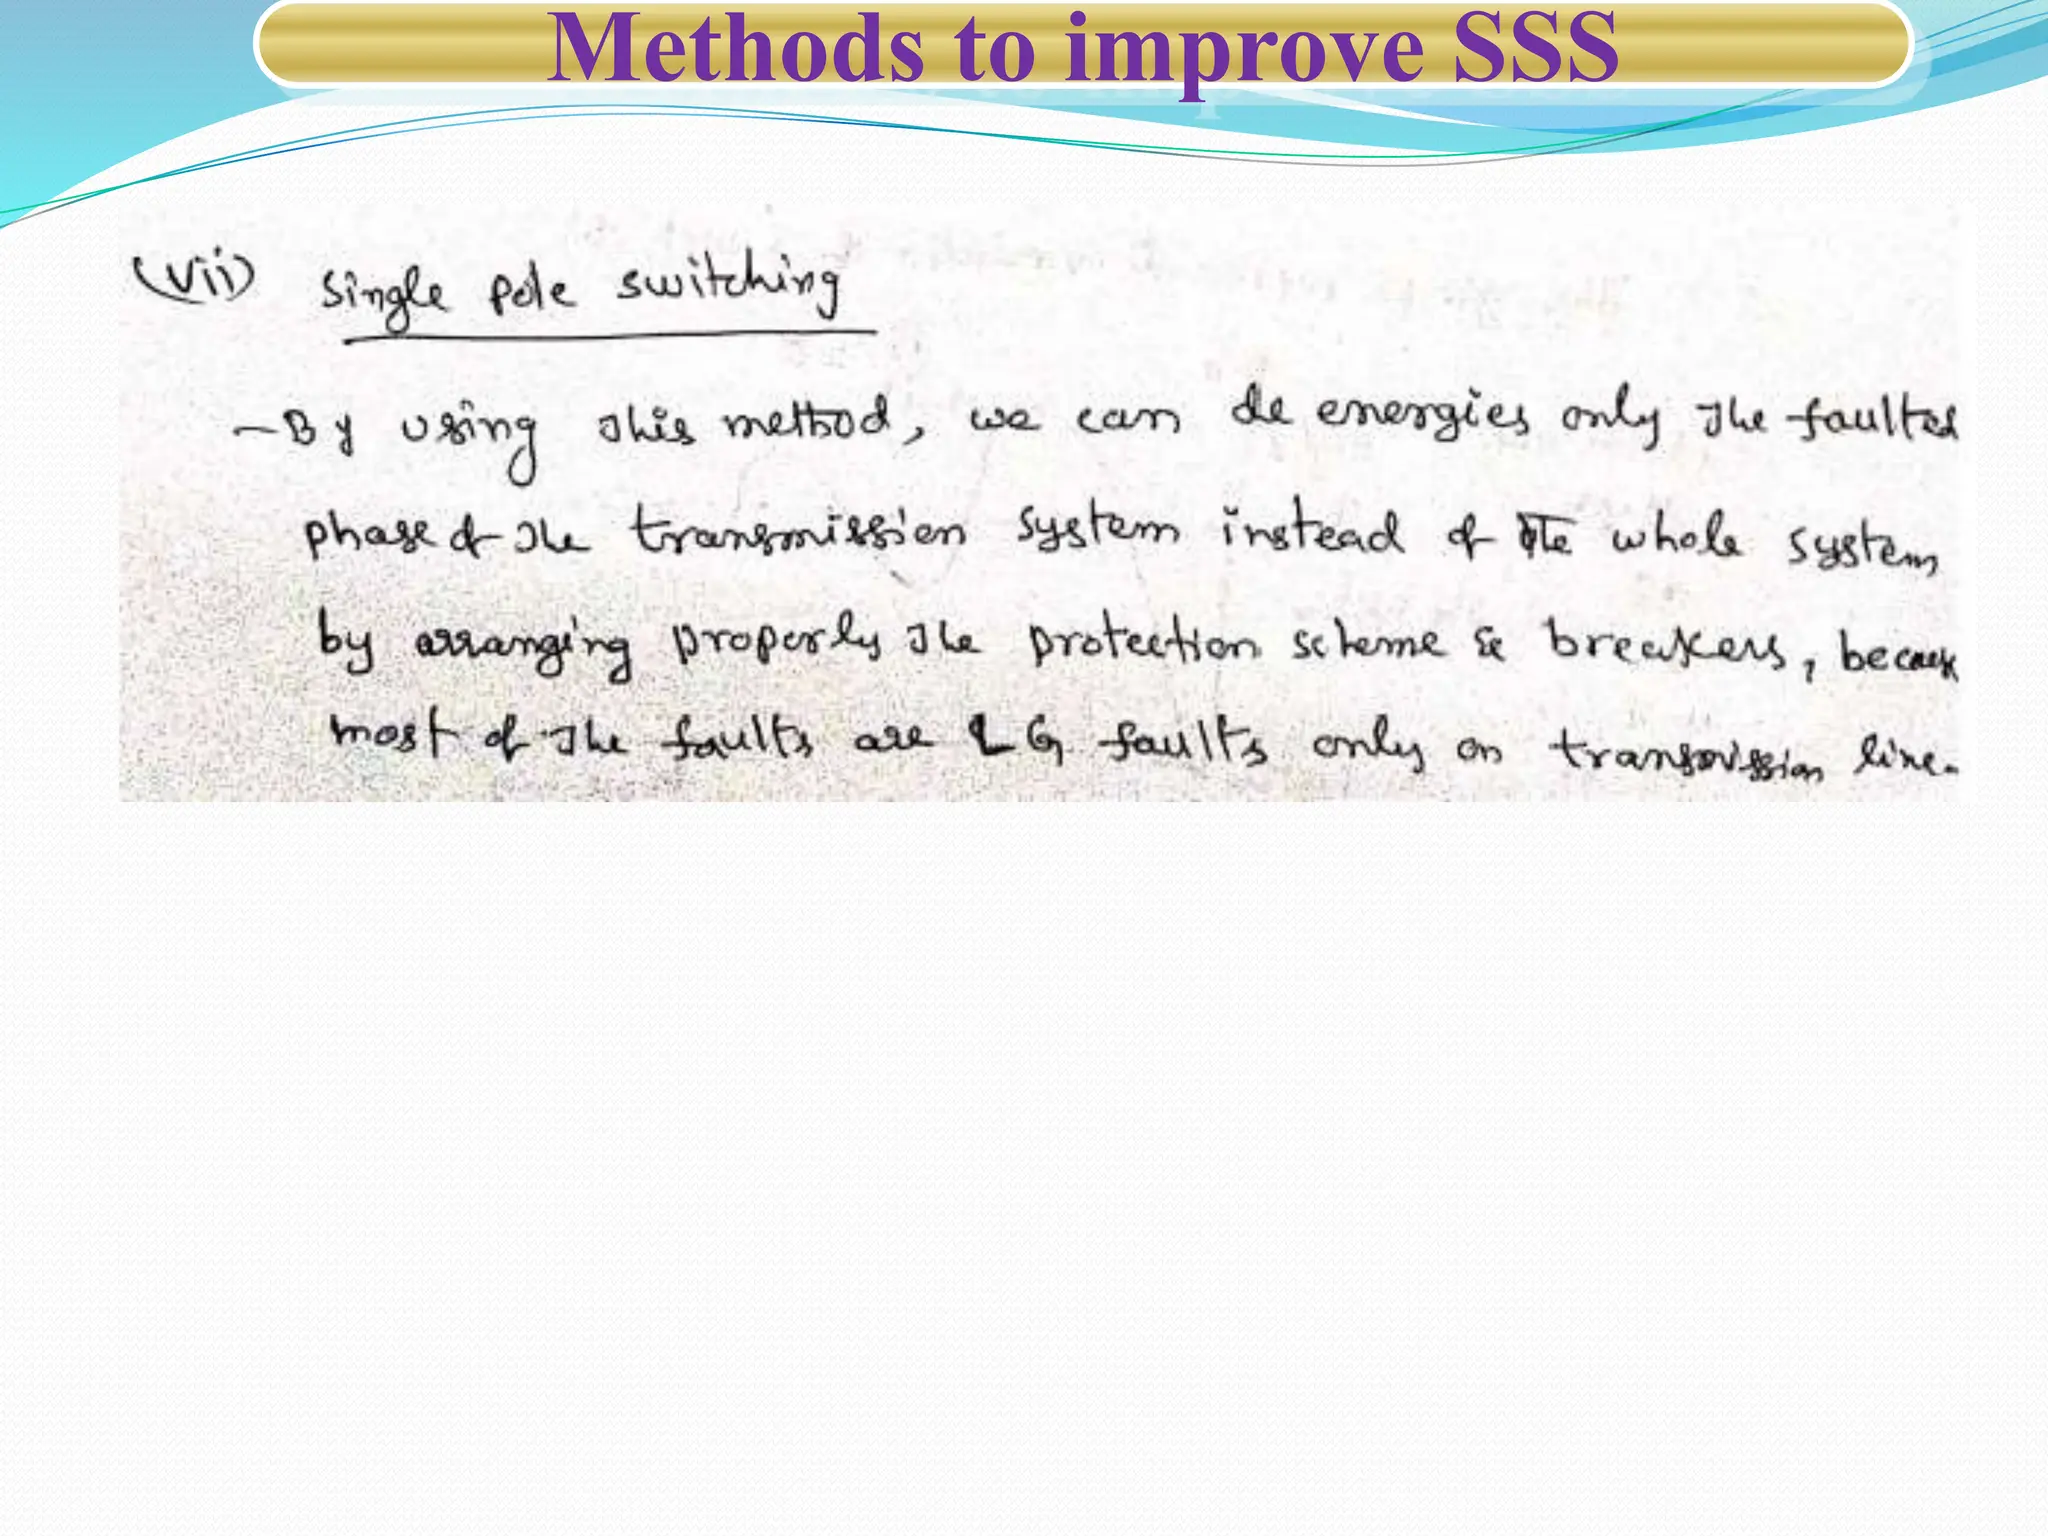 Methods to improve SSS
(vii) Single pole switching
- By using this method, we can de energies only the faulted
phase of the transmission system instead of the whole system
by arranging properly the protection scheme & breakers, because
most of the faults are LG faults only on transmission line.